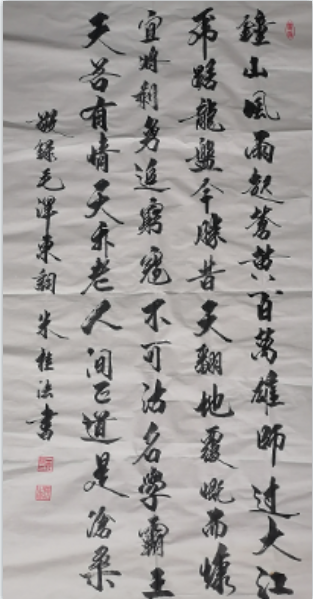 鐘山風雨起蒼黄百萬雄師过大江
虎踞龍盤今勝昔天翻地覆慨而慷
宜將剩勇追窮寇不可沽名學霸王
天若有情天亦老人间正道是滄桑
敬錄毛澤東詞 朱桂法書